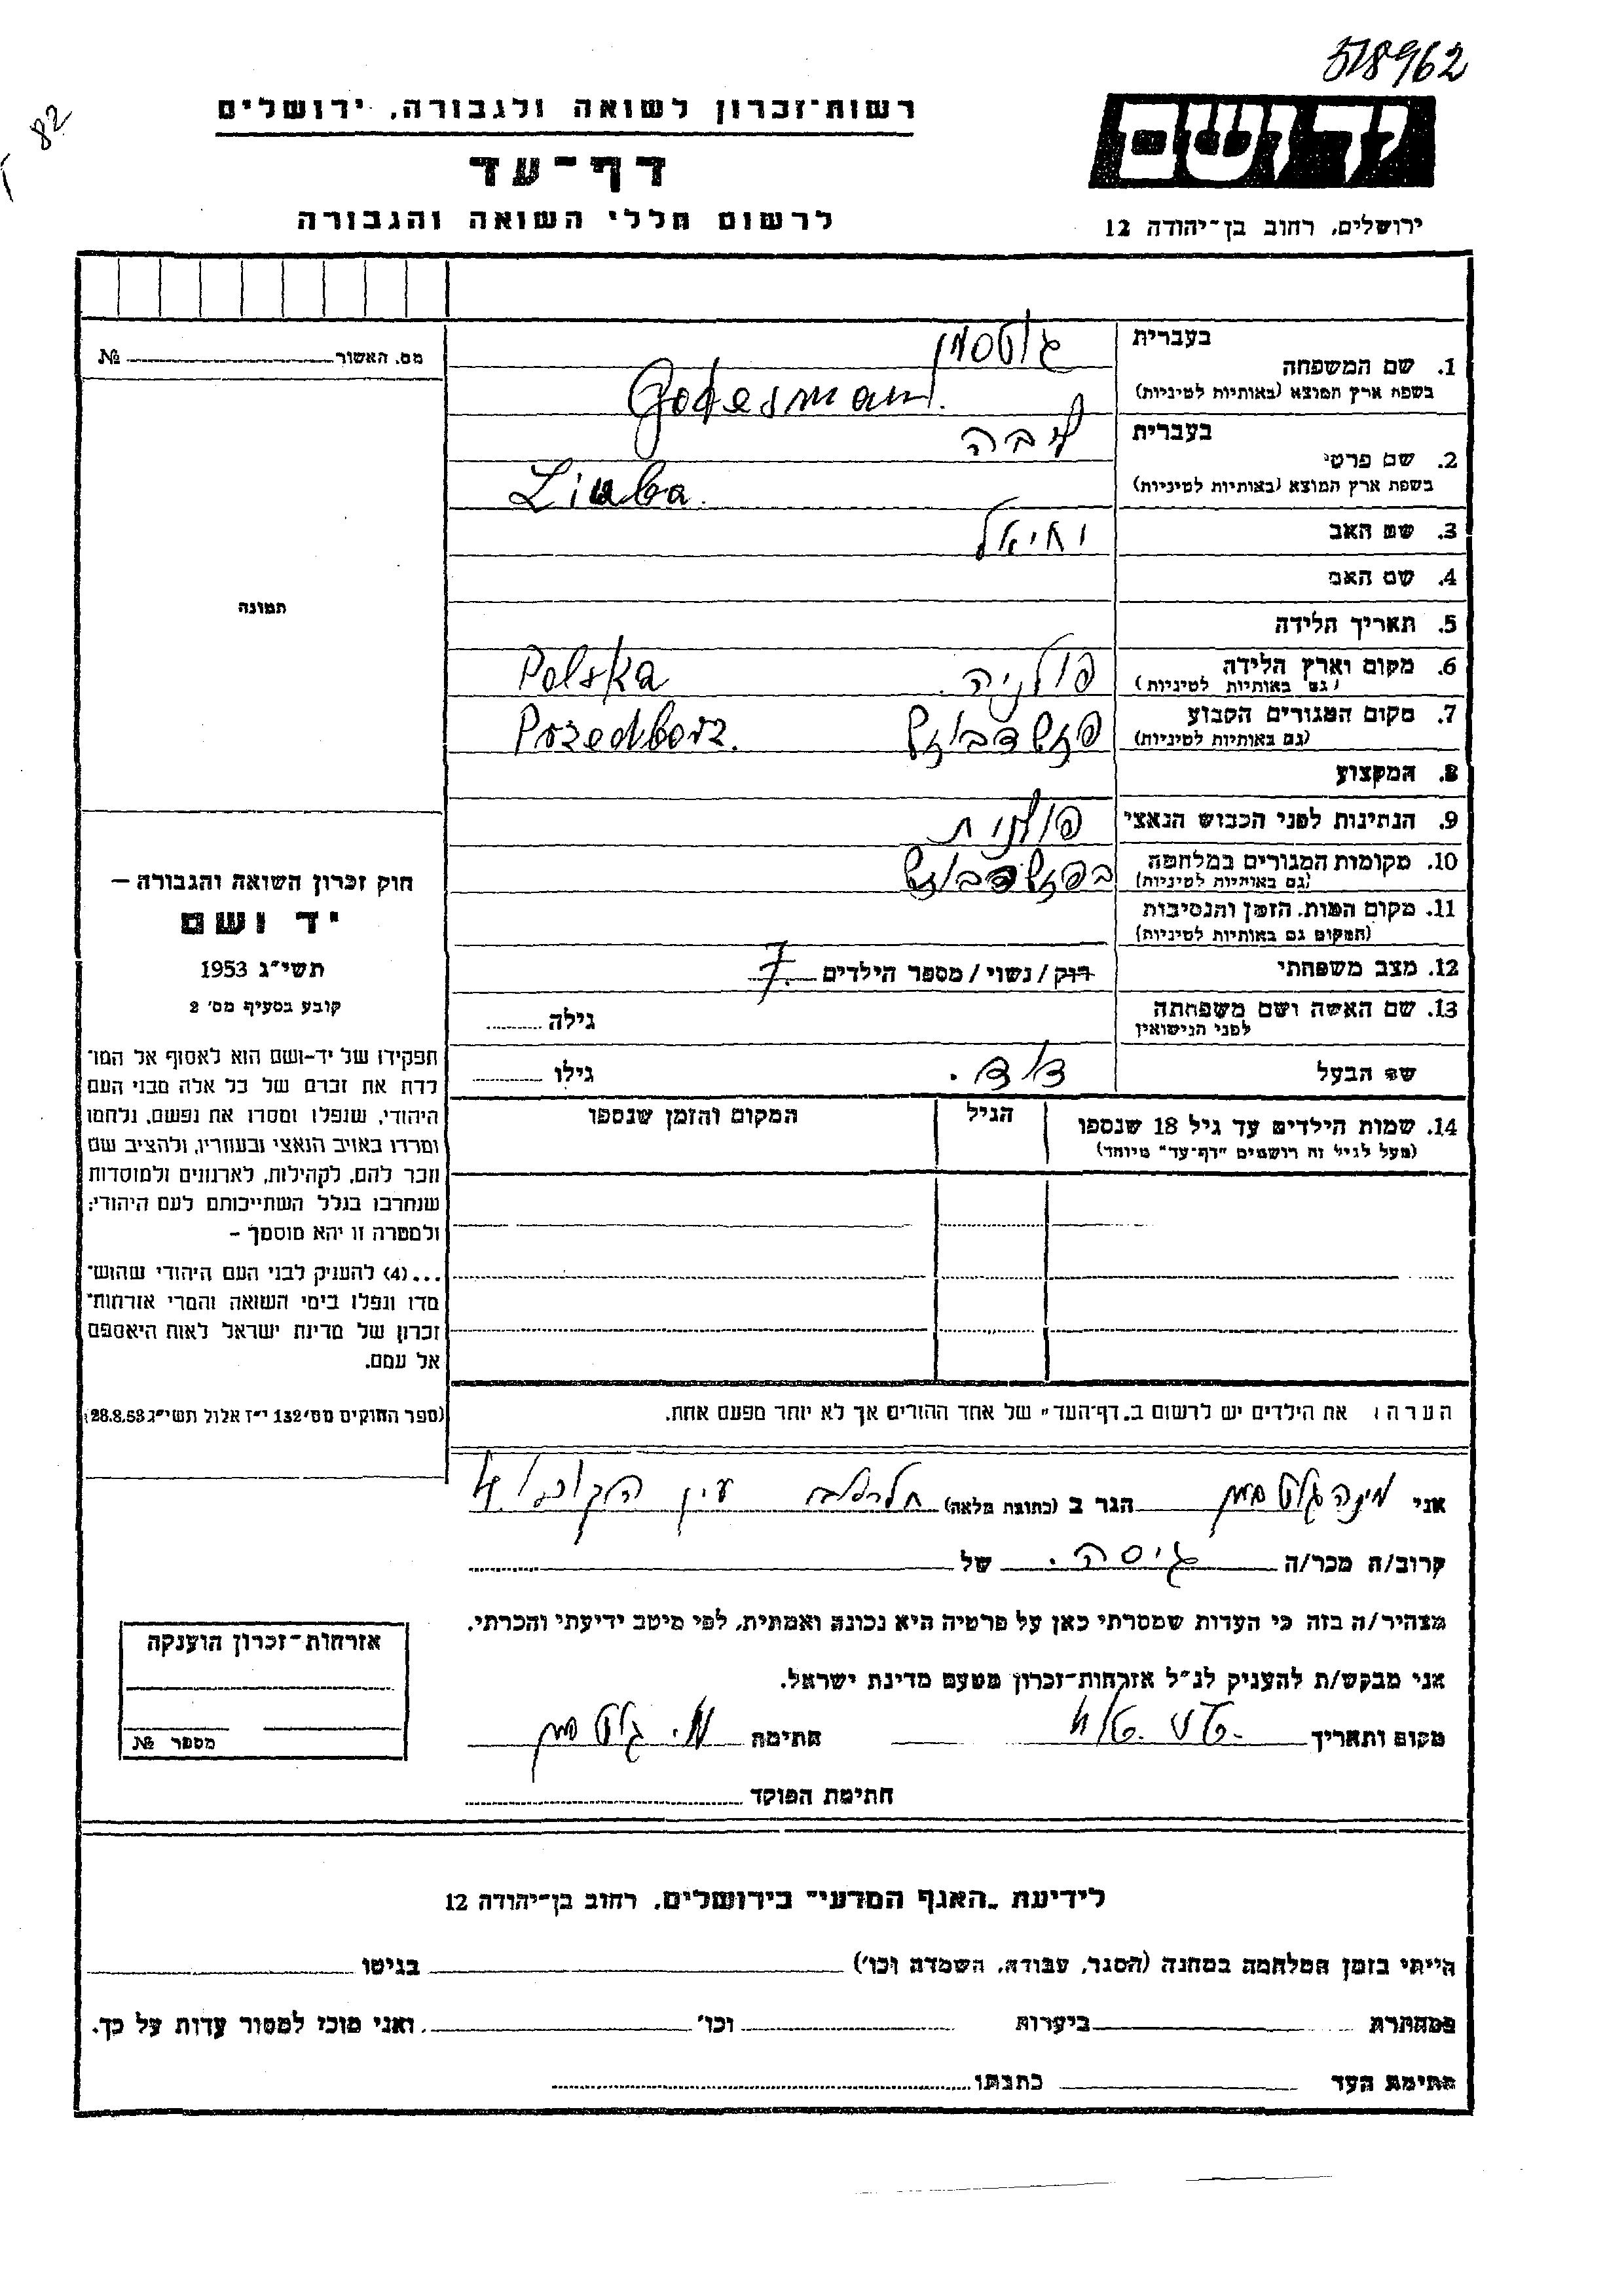 518962
82
יד ושם
ירושלים, רחוב בן־יהודה 12
רשות־זכרון לשואה ולגבורה, ירושלים
דף־עד
לרשום חללי השואה והגבורה
מס. האשור № 
תמונה
1. שם המשפחה
בעברית גוטסמן
בשפת ארץ המוצא (באותיות לטיניות) Gotesman.
2. שם פרטי
בעברית ליבה
בשפת ארץ המוצא (באותיות לטיניות) Liuba.
3. שם האב יחיאל
4. שם האם
5. תאריך הלידה
6. מקום וארץ הלידה (גם באותיות לטיניות) פולניה. Polska
7. מקום המגורים הקבוע (גם באותיות לטיניות) Przedborz.
8. המקצוע
9. הנתינות לפני הכבוש הנאצי פולנית
10. מקומות המגורים במלחמה (גם באותיות לטיניות)
11. מקום המות, הזמן והנסיבות (המקום גם באותיות לטיניות)
12. מצב משפחתי רוק/נשוי/מספר הילדים 7.
13. שם האשה ושם משפחתה לפני הנישואין גילה
שם הבעל דוד. גילו
14. שמות הילדים עד גיל 18 שנספו (מעל לגיל זה רושמים "דף־עד" מיוחד) הגיל המקום והזמן שנספו
הערה: את הילדים יש לרשום ב„דף־העד" של אחד ההורים אך לא יותר מפעם אחת.
חוק זכרון השואה והגבורה –
יד ושם
תשי"ג 1953
קובע בסעיף מס' 2
תפקידו של יד-ושם הוא לאסוף אל המו־
לדת את זכרם של כל אלה מבני העם
היהודי, שנפלו ומסרו את נפשם, נלחמו
ומרדו באויב הנאצי ובעוזריו, ולהציב שם
וזכר להם, לקהילות, לארגונים ולמוסדות
שנחרבו בגלל השתייכותם לעם היהודי;
ולמטרה זו יהא מוסמך –
...(4) להעניק לבני העם היהודי שהוש־
מדו ונפלו בימי השואה והמרי אזרחות־
זכרון של מדינת ישראל לאות היאספם
אל עמם.
(ספר החוקים מס' 132 י"ז אלול תשי"ג 28.8.53)
אני מינה גוטסמן הגר ב (כתובת מלאה) עין
קרוב/ה מכר/ה גיסה. של
מצהיר/ה בזה כי העדות שמסרתי כאן על פרטיה היא נכונה ואמתית, לפי מיטב ידיעתי והכרתי.
אני מבקש/ת להעניק לנ"ל אזרחות־זכרון מטעם מדינת ישראל.
מקום ותאריך חתימה מ. גוטסמן
חתימת הפוקד
אזרחות־זכרון הוענקה
מספר №
לידיעת „האגף המדעי" בירושלים, רחוב בן־יהודה 12
הייתי בזמן המלחמה במחנה (הסגר, עבודה, השמדה וכו') בגיטו
במחתרת ביערות וכו' ואני מוכן למסור עדות על כך.
חתימת העד כתבתו